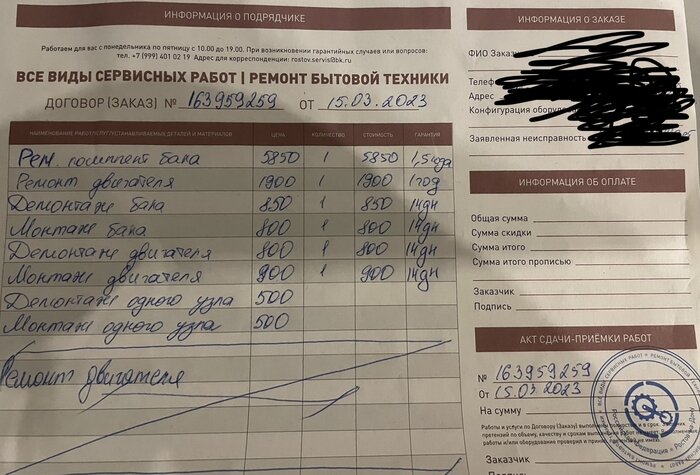 ИНФОРМАЦИЯ О ПОДРЯДЧИКЕ
Работаем для вас с понедельника по пятницу с 10.00 до 19.00. При возникновении гарантийных случаев или вопросов:
тел. +7 (999) 401 02 19 Адрес для корреспонденции: rostov.servis@bk.ru
ВСЕ ВИДЫ СЕРВИСНЫХ РАБОТ | РЕМОНТ БЫТОВОЙ ТЕХНИКИ
ДОГОВОР (ЗАКАЗ) № 163959259 от 15.03.2023
НАИМЕНОВАНИЕ РАБОТ/УСЛУГ/УСТАНАВЛИВАЕМЫХ ДЕТАЛЕЙ И МАТЕРИАЛОВ ЦЕНА КОЛИЧЕСТВО СТОИМОСТЬ ГАРАНТИЯ
Рем. комплект бака 5850 1 5850 1,5 года
Ремонт двигателя 1900 1 1900 1 год
Демонтаж бака 850 1 850 14 дн
Монтаж бака 800 1 800 14 дн
Демонтаж двигателя 800 1 800 14 дн
Монтаж двигателя 900 1 900 14 дн
Демонтаж одного узла 500
Монтаж одного узла 500
Ремонт двигателя
ИНФОРМАЦИЯ О ЗАКАЗЕ
ФИО Заказ
Телеф
Адрес
Конфигурация оборуд
Заявленная неисправность
ИНФОРМАЦИЯ ОБ ОПЛАТЕ
Общая сумма
Сумма скидки
Сумма итого
Сумма итого прописью
Заказчик
Подпись
АКТ СДАЧИ-ПРИЁМКИ РАБОТ
№ 163959259
От 15.03.2023
На сумму
Работы и услуги по Договору (Заказу) выполнены
претензий по объему, качеству и срокам выполнения работ
работы и/или оборудование проверил и принял, претензий не имеет.
Заказчик
Подпись
ВСЕ ВИДЫ СЕРВИСНЫХ РАБОТ • РЕМОНТ БЫТОВОЙ